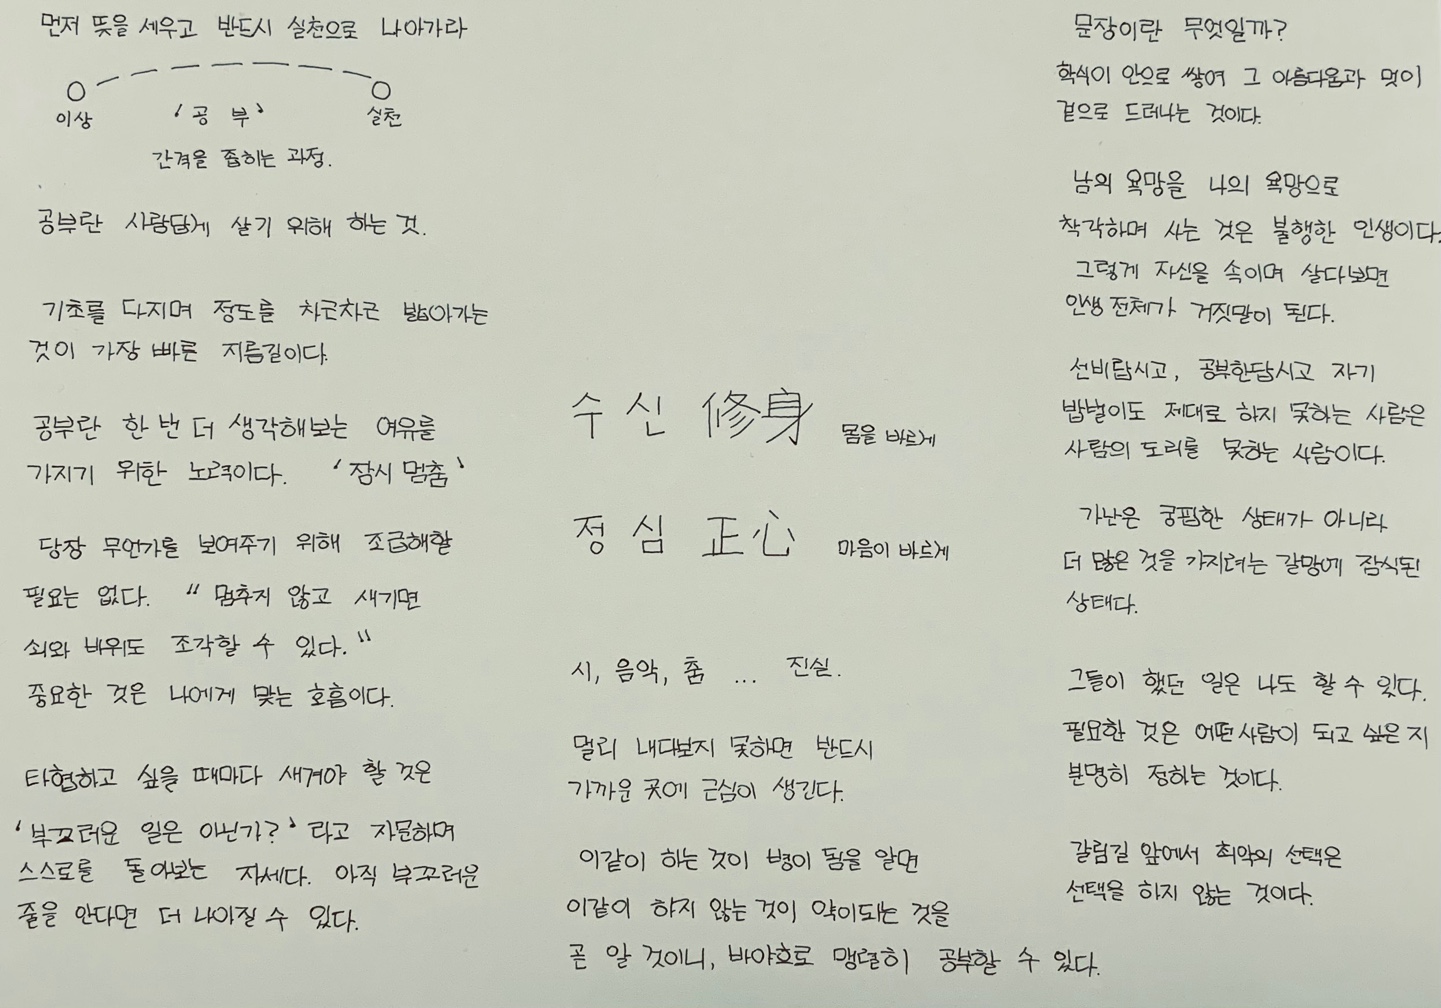 먼저 뜻을 세우고 반드시 실천으로 나아가라
이상 '공부' 실천
간격을 좁히는 과정.
공부란 사람답게 살기 위해 하는 것.
기초를 다지며 정도를 차근차근 밟아가는
것이 가장 빠른 지름길이다.
공부란 한 번 더 생각해보는 여유를
가지기 위한 노력이다. '잠시 멈춤'
당장 무언가를 보여주기 위해 조급해할
필요는 없다. "멈추지 않고 새기면
쇠와 바위도 조각할 수 있다."
중요한 것은 나에게 맞는 호흡이다.
타협하고 싶을 때마다 새겨야 할 것은
'부끄러운 일은 아닌가?' 라고 자문하며
스스로를 돌아보는 자세다. 아직 부끄러운
줄을 안다면 더 나아질 수 있다.
수신 修身 몸을 바르게
정심 正心 마음이 바르게
시, 음악, 춤 ... 진실.
멀리 내다보지 못하면 반드시
가까운 곳에 근심이 생긴다.
이같이 하는 것이 병이 됨을 알면
이같이 하지 않는 것이 약이되는 것을
곧 알 것이니, 바야흐로 맹렬히 공부할 수 있다.
문장이란 무엇일까?
학식이 안으로 쌓여 그 아름다움과 멋이
겉으로 드러나는 것이다.
남의 욕망을 나의 욕망으로
착각하며 사는 것은 불행한 인생이다.
그렇게 자신을 속이며 살다보면
인생 전체가 거짓말이 된다.
선비랍시고, 공부한답시고 자기
밥벌이도 제대로 하지 못하는 사람은
사람의 도리를 못하는 사람이다.
가난은 궁핍한 상태가 아니라
더 많은 것을 가지려는 갈망에 잠식된
상태다.
그들이 했던 일은 나도 할 수 있다.
필요한 것은 어떤사람이 되고 싶은 지
분명히 정하는 것이다.
갈림길 앞에서 최악의 선택은
선택을 하지 않는 것이다.